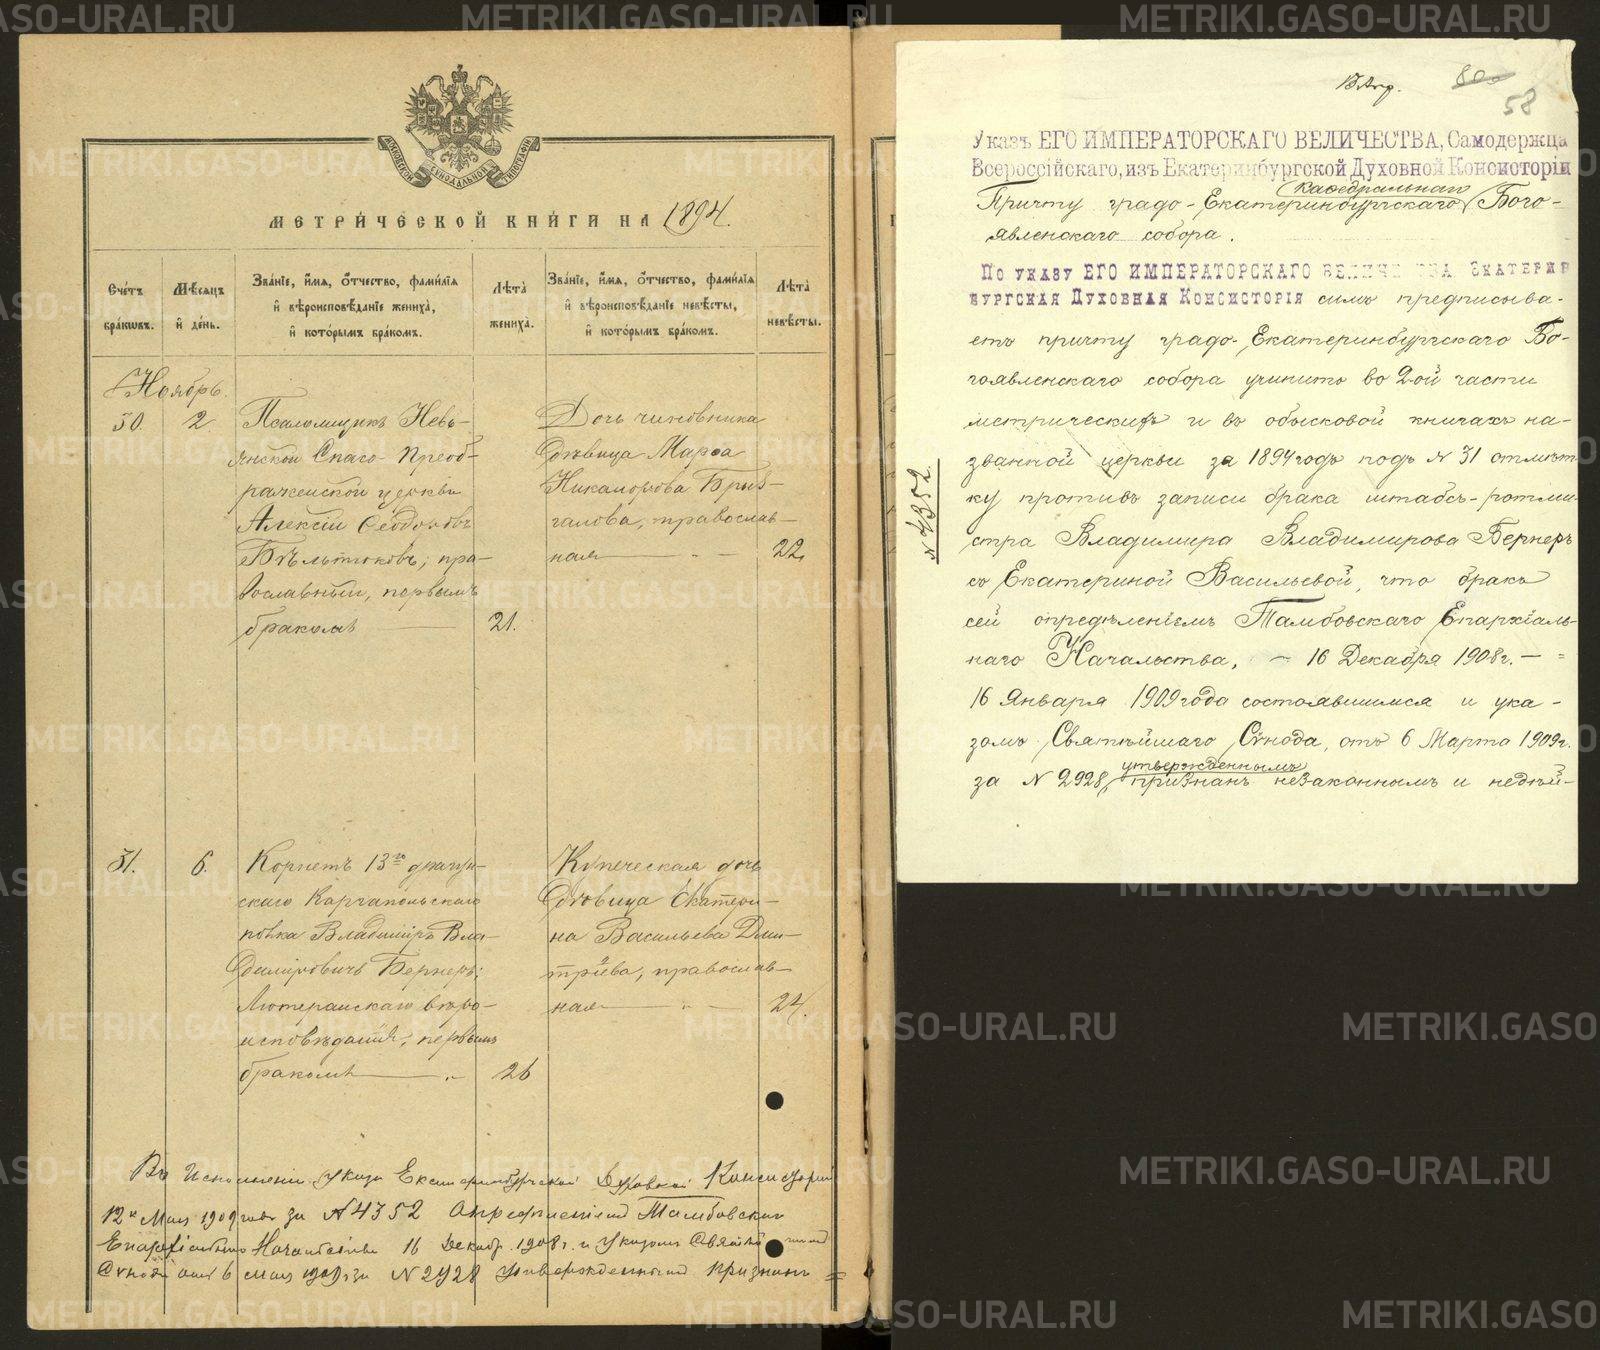 МОСКОВСКОЙ СѴНОДАЛЬНОЙ ТИПОГРАФІИ
МЕТРИЧЕСКОЙ КНИГИ НА 1894.
Счетъ браковъ.
Мѣсяцъ и день.
Званіе, имя, отчество, фамилія и вѣроисповѣданіе жениха, и которымъ бракомъ.
Лѣта жениха.
Званіе, имя, отчество, фамилія и вѣроисповѣданіе невѣсты, и которымъ бракомъ.
Лѣта невѣсты.
Ноябрь.
30.
2.
Псаломщикъ Невь-
янской Спасо-Преоб-
раженской церкви
Алексій Ѳеодоровъ
Бѣльтюковъ, пра-
вославный, первымъ
бракомъ
21.
Дочь чиновника
Дѣвица Марѳа
Никанорова Брыз-
галова, православ-
ная
22.
31.
6.
Корнетъ 13го драгун-
скаго Каргапольскаго
полка Владиміръ Вла-
диміровичъ Бернеръ;
Лютеранскаго вѣро-
исповѣданія, первымъ
бракомъ
26
Купеческая дочь
Дѣвица Екатери-
на Васильева Дми-
тріева, православ-
ная
24.
Въ исполненіи указа Екатеринбургской Духовной Консисторіи
12 Мая 1909 года за №4352 опредѣленіемъ Тамбовскаго
Епархіальнаго Начальства 16 Декабр. 1908 г. и указомъ Святѣйшаго
Сѵнода отъ 6 Мар 1909 г за №2928 утвержденнымъ признанъ =
80
58
Указъ ЕГО ИМПЕРАТОРСКАГО ВЕЛИЧЕСТВА, Самодержца
Всероссійскаго, изъ Екатеринбургской Духовной Консисторіи
Причту градо-Екатеринбургскаго кафедральнаго Бого-
явленскаго собора.
По указу ЕГО ИМПЕРАТОРСКАГО ВЕЛИЧЕСТВА, Екатерин
бургская Духовная Консисторія симъ предписыва-
етъ причту градо-Екатеринбургскаго Бо-
гоявленскаго собора учинить во 2-ой части
метрическихъ и въ обысковой книгахъ на-
званной церкви за 1894 годъ подъ №31 отмѣт
ку противъ записи брака штабсъ-ротми-
стра Владимира Владимирова Бернеръ
съ Екатериной Васильевой, что бракъ
сей опредѣленіемъ Тамбовскаго Епархіаль-
наго Начальства, - 16 Декабря 1908 г. - =
16 Января 1909 года состоявшимся и ука-
зомъ Святѣйшаго Сѵнода, отъ 6 Марта 1909 г.
за №2928, утвержденнымъ признанъ незаконнымъ и недѣй-
№4352.
METRIKI.GASO-URAL.RU